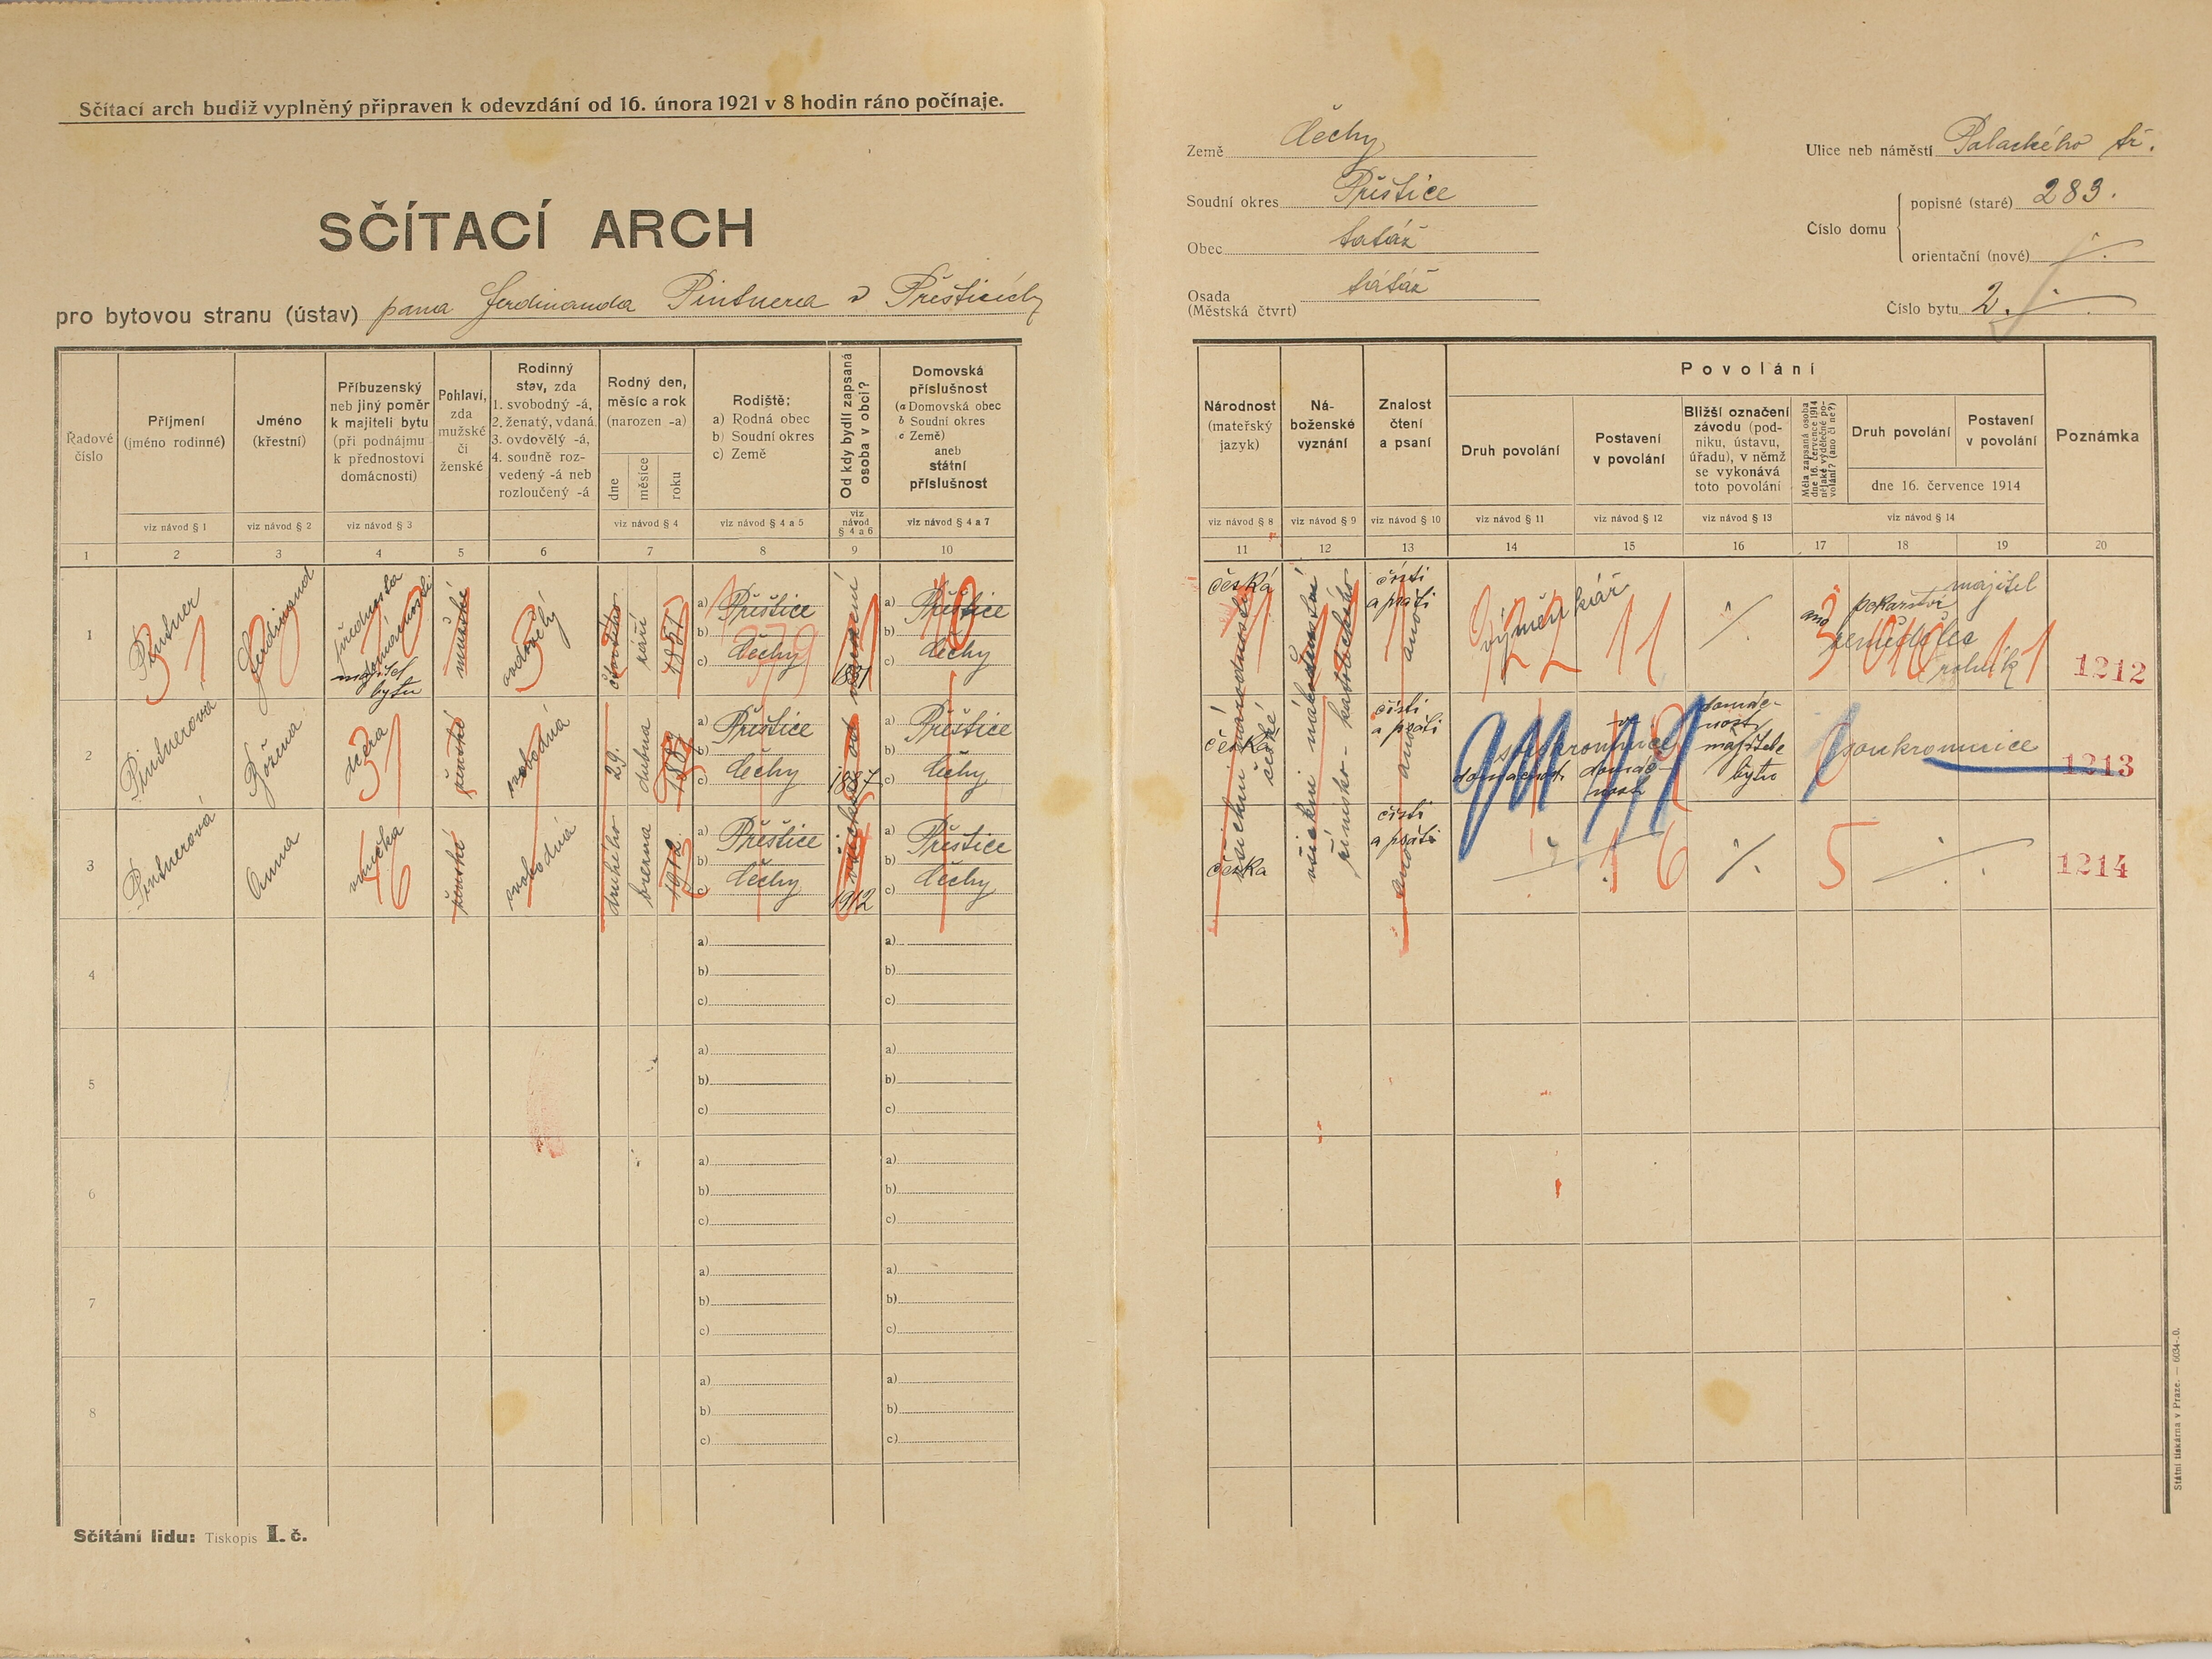 Sčítací arch budiž vyplněný připraven k odevzdání od 16. února 1921 v 8 hodin ráno počínaje.
SČÍTACÍ ARCH
pro bytovou stranu (ústav) pana Ferdinanda Pintnera v Přešticích
Země Čechy
Soudní okres Přeštice
Obec tatáž
Osada tatáž
(Městská čtvrt)
Ulice neb náměstí Palackého tř.
Číslo domu
popisné (staré) 283.
orientační (nové)
Číslo bytu 2.
Řadové číslo
Příjmení (jméno rodinné)
Jméno (křestní)
Příbuzenský neb jiný poměr k majiteli bytu (při podnájmu k přednostovi domácnosti)
Pohlaví, zda mužské či ženské
Rodinný stav, zda
1. svobodný -á,
2. ženatý, vdaná,
3. ovdovělý -á,
4. soudně rozvedený -á neb rozloučený -á
Rodný den, měsíc a rok (narozen -a)
dne měsíce roku
Rodiště:
a) Rodná obec
b) Soudní okres
c) Země
Od kdy bydlí zapsaná osoba v obci?
Domovská příslušnost
(a Domovská obec
b Soudní okres
c Země)
aneb
státní příslušnost
viz návod § 1 viz návod § 2 viz návod § 3 viz návod § 4 viz návod § 4 a 5 viz návod § 4 a 6 viz návod § 4 a 7
1 2 3 4 5 6 7 8 9 10
Národnost (mateřský jazyk)
Náboženské vyznání
Znalost čtení a psaní
Povolání
Druh povolání
Postavení v povolání
Bližší označení závodu (podniku, ústavu, úřadu), v němž se vykonává toto povolání
Měla zapsaná osoba dne 16. července 1914 nějaké výdělečné povolání? (ano či ne?)
Druh povolání
Postavení v povolání
dne 16. července 1914
Poznámka
viz návod § 8 viz návod § 9 viz návod § 10 viz návod § 11 viz návod § 12 viz návod § 13 viz návod § 14
11 12 13 14 15 16 17 18 19 20
1 Pintner Ferdinand přednosta domácnosti majitel bytu mužské ovdovělý září 1851
a) Přeštice
b)
c) Čechy
od narození 1851
a) Přeštice
b)
c) Čechy
česká čísti a psáti ano výměnkář ano pekařství majitel zemědělec rolník 1212
2 Pintnerová Božena dcera ženské svobodná 29. dubna 1887
a) Přeštice
b)
c) Čechy
1887
a) Přeštice
b)
c) Čechy
česká čísti a psáti ano soukromnice domácnost v domácnosti domácnost majitele bytu soukromnice 1213
3 Pintnerová Anna vnučka ženské svobodná druhého března 1912
a) Přeštice
b)
c) Čechy
1912
a) Přeštice
b)
c) Čechy
česká čísti a psáti ano 1 6 5 1214
všichni národnosti české
všichni náboženství římsko-katolického
4 a) b) c) a) b) c)
5 a) b) c) a) b) c)
6 a) b) c) a) b) c)
7 a) b) c) a) b) c)
8 a) b) c) a) b) c)
Sčítání lidu: Tiskopis I. č.
Státní tiskárna v Praze. — 6034-.0.